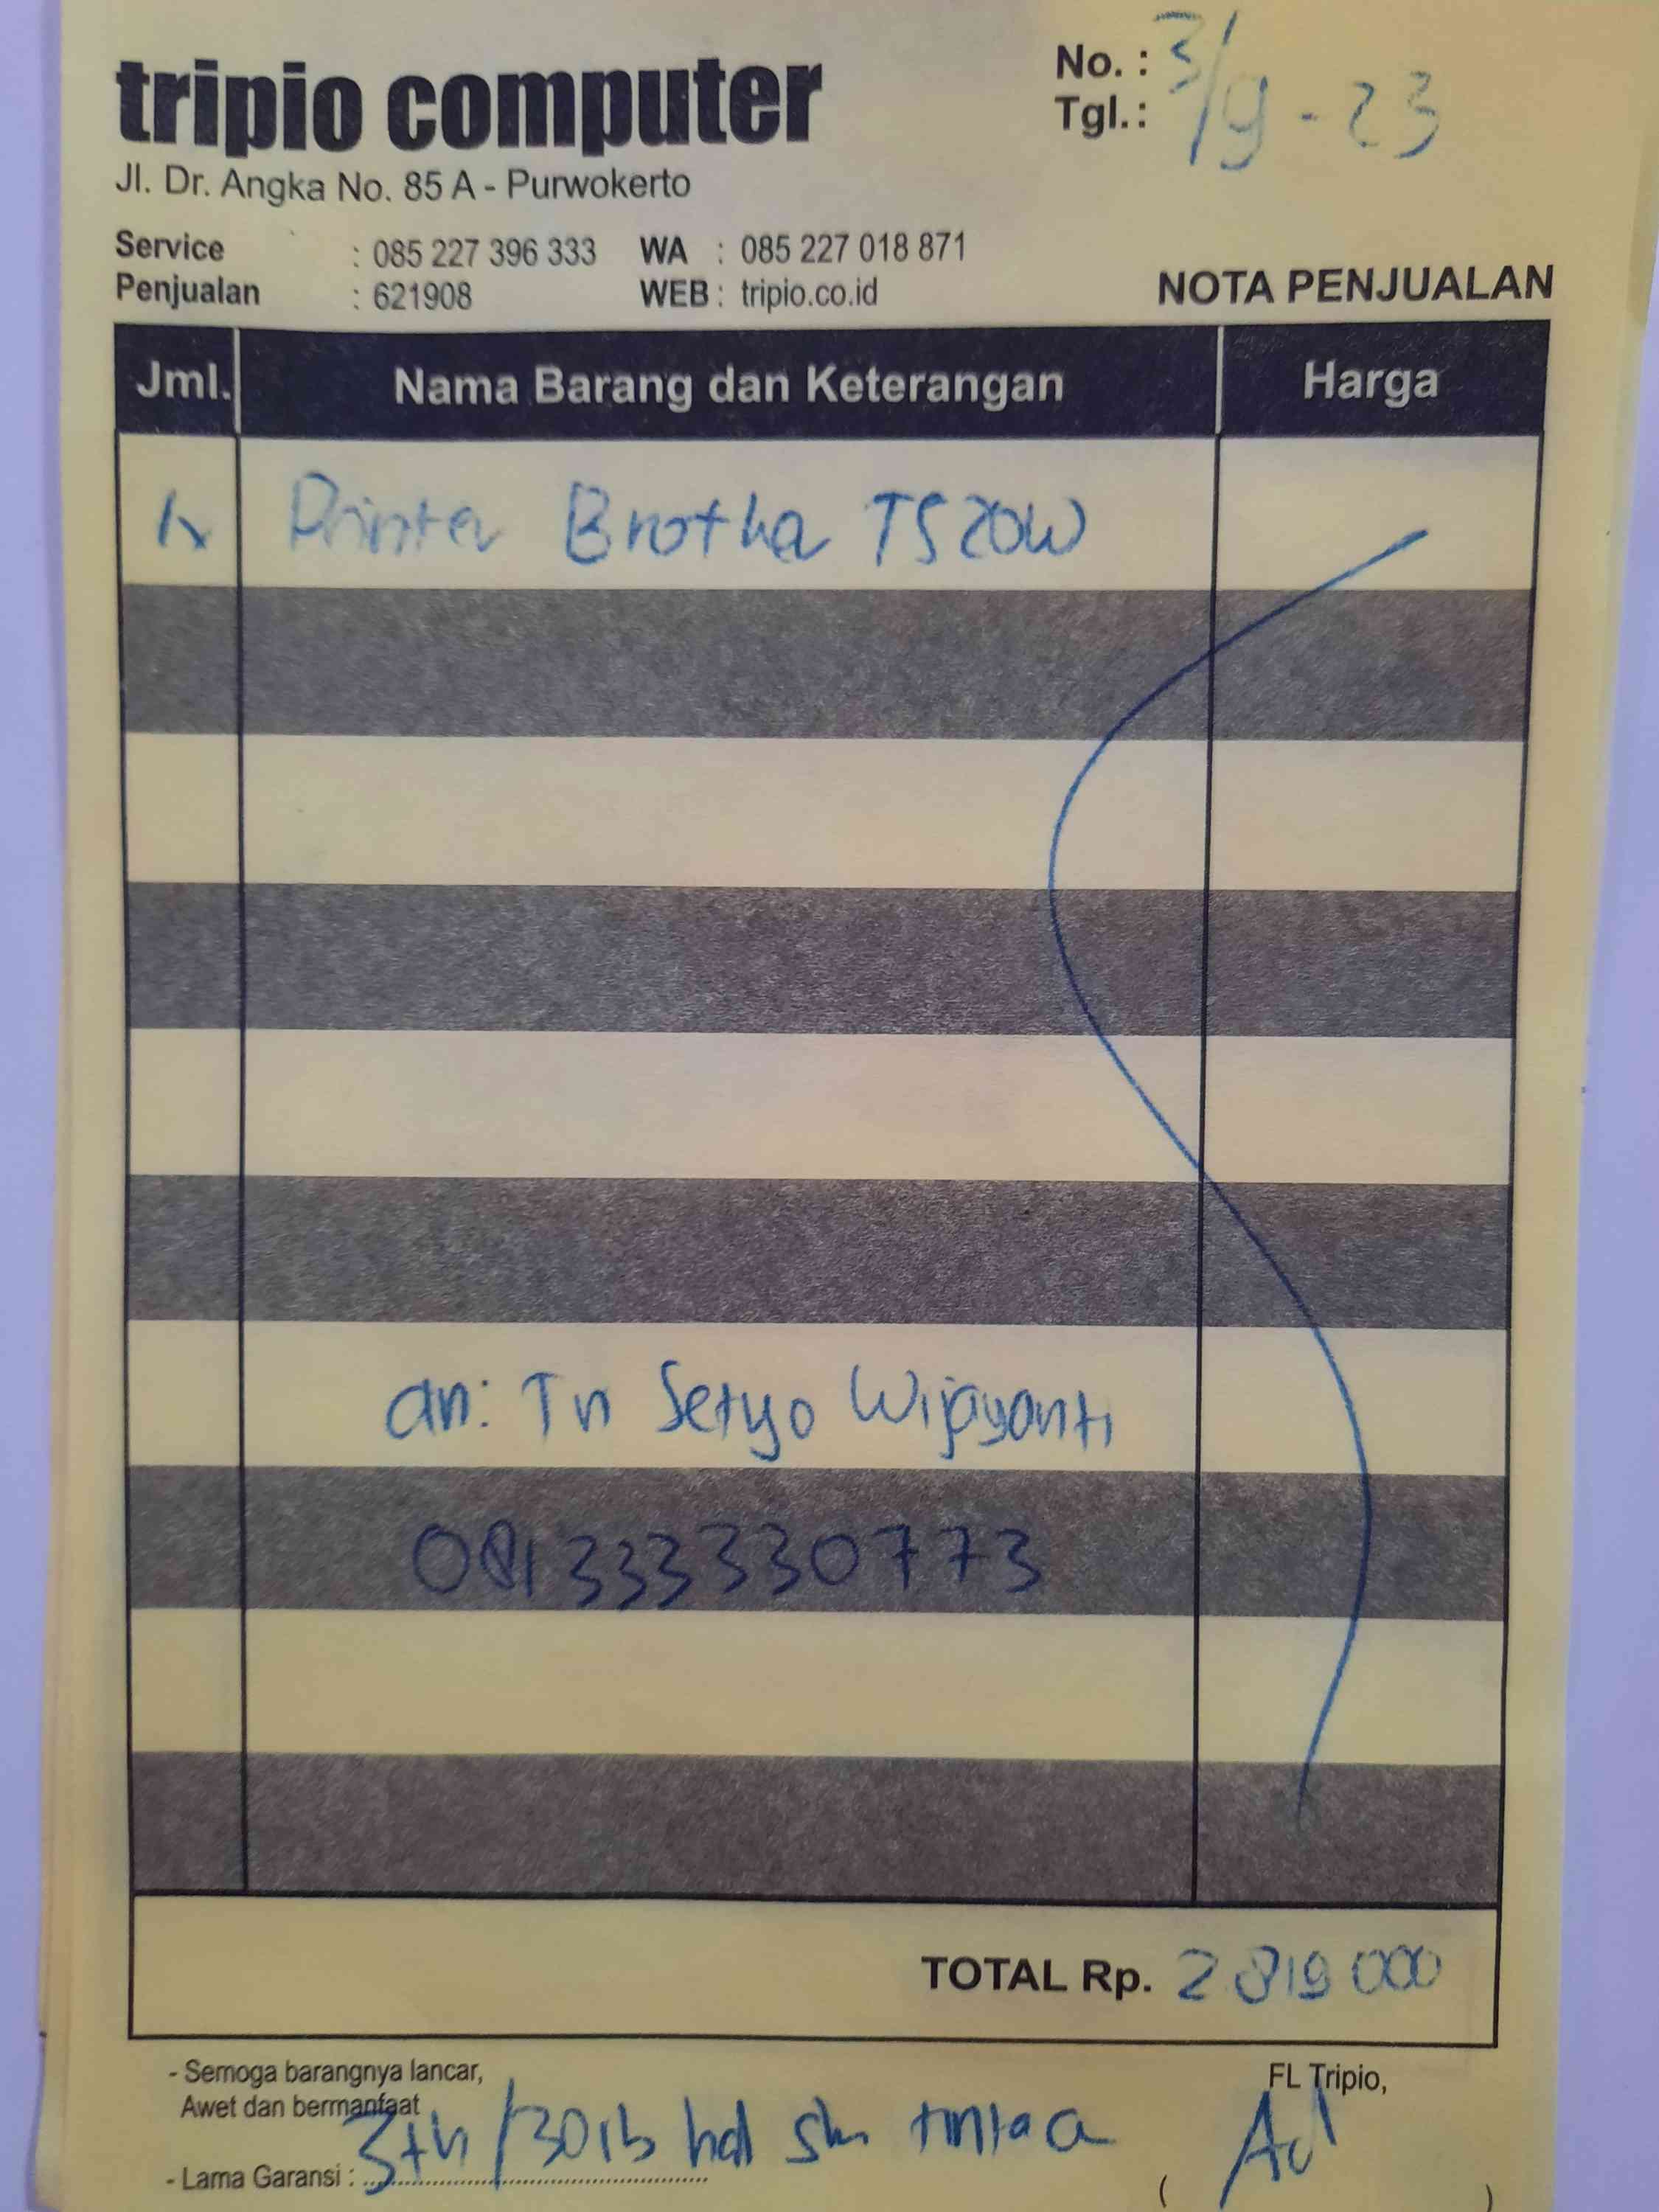 tripio computer
Jl. Dr. Angka No. 85 A - Purwokerto
No. :
Tgl. : 3/9 - 23
Service : 085 227 396 333 WA : 085 227 018 871
Penjualan : 621908 WEB : tripio.co.id
NOTA PENJUALAN
Jml. Nama Barang dan Keterangan Harga
1x Printer Brother T520W
an: Tn Setyo Wijayanti
081333330773
TOTAL Rp. 2 819 000
- Semoga barangnya lancar,
Awet dan bermanfaat
FL Tripio,
- Lama Garansi : 3th / 30rb hal
( )